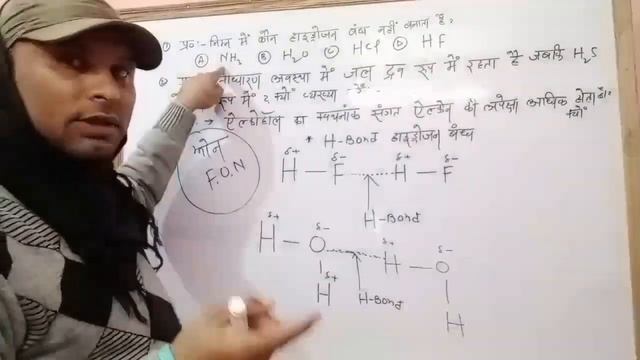 ① प्र०:- निम्न में कौन हाइड्रोजन बंध नहीं बनाता है?
Ⓐ NH₃ Ⓑ H₂O Ⓒ HCl Ⓓ HF
साधारण अवस्था में जल द्रव रूप में रहता है जबकि H₂S
रूप में क्यों व्याख्या
→ ऐल्कोहॉल का क्वथनांक संगत ऐल्केन की अपेक्षा अधिक होता है। क्यों
* H-Bond हाइड्रोजन बंध
फोन
F.O.N
δ+ δ- δ+ δ-
H – F ...... H – F
H-Bond
δ+ δ- δ+ δ-
H – O ...... H – O
δ+
H H-Bond H